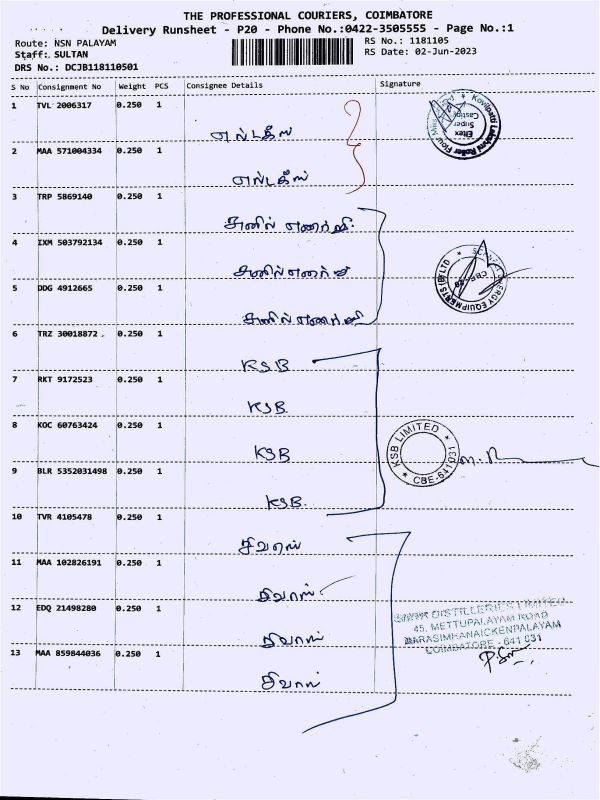 THE PROFESSIONAL COURIERS, COIMBATORE
Delivery Runsheet - P20 - Phone No.:0422-3505555 - Page No.:1
Route: NSN PALAYAM
Staff: SULTAN
DRS No.: DCJB118110501
RS No.: 1181105
RS Date: 02-Jun-2023
S No Consignment No Weight PCS Consignee Details Signature
1 TVL 2006317 0.250 1
எல்டகீஸ்
2 MAA 571004334 0.250 1
எல்டகீஸ்
3 TRP 5869140 0.250 1
சுனில் எனர்ஜி
4 IXM 503792134 0.250 1
சுனில் எனர்ஜி
5 DDG 4912665 0.250 1
சுனில் எனர்ஜி
6 TRZ 30018872 0.250 1 KSB
7 RKT 9172523 0.250 1 KSB
8 KOC 60763424 0.250 1 KSB
9 BLR 5352031498 0.250 1 KSB
KSB LIMITED
CBE-641031
10 TVR 4105478 0.250 1
சிவாஸ்
11 MAA 102826191 0.250 1
சிவாஸ்
12 EDQ 21498280 0.250 1
சிவாஸ்
13 MAA 859844036 0.250 1
சிவாஸ்
DISTILLERIES LIMITED
45, METTUPALAYAM ROAD
NARASIMHANAICKENPALAYAM
COIMBATORE - 641 031